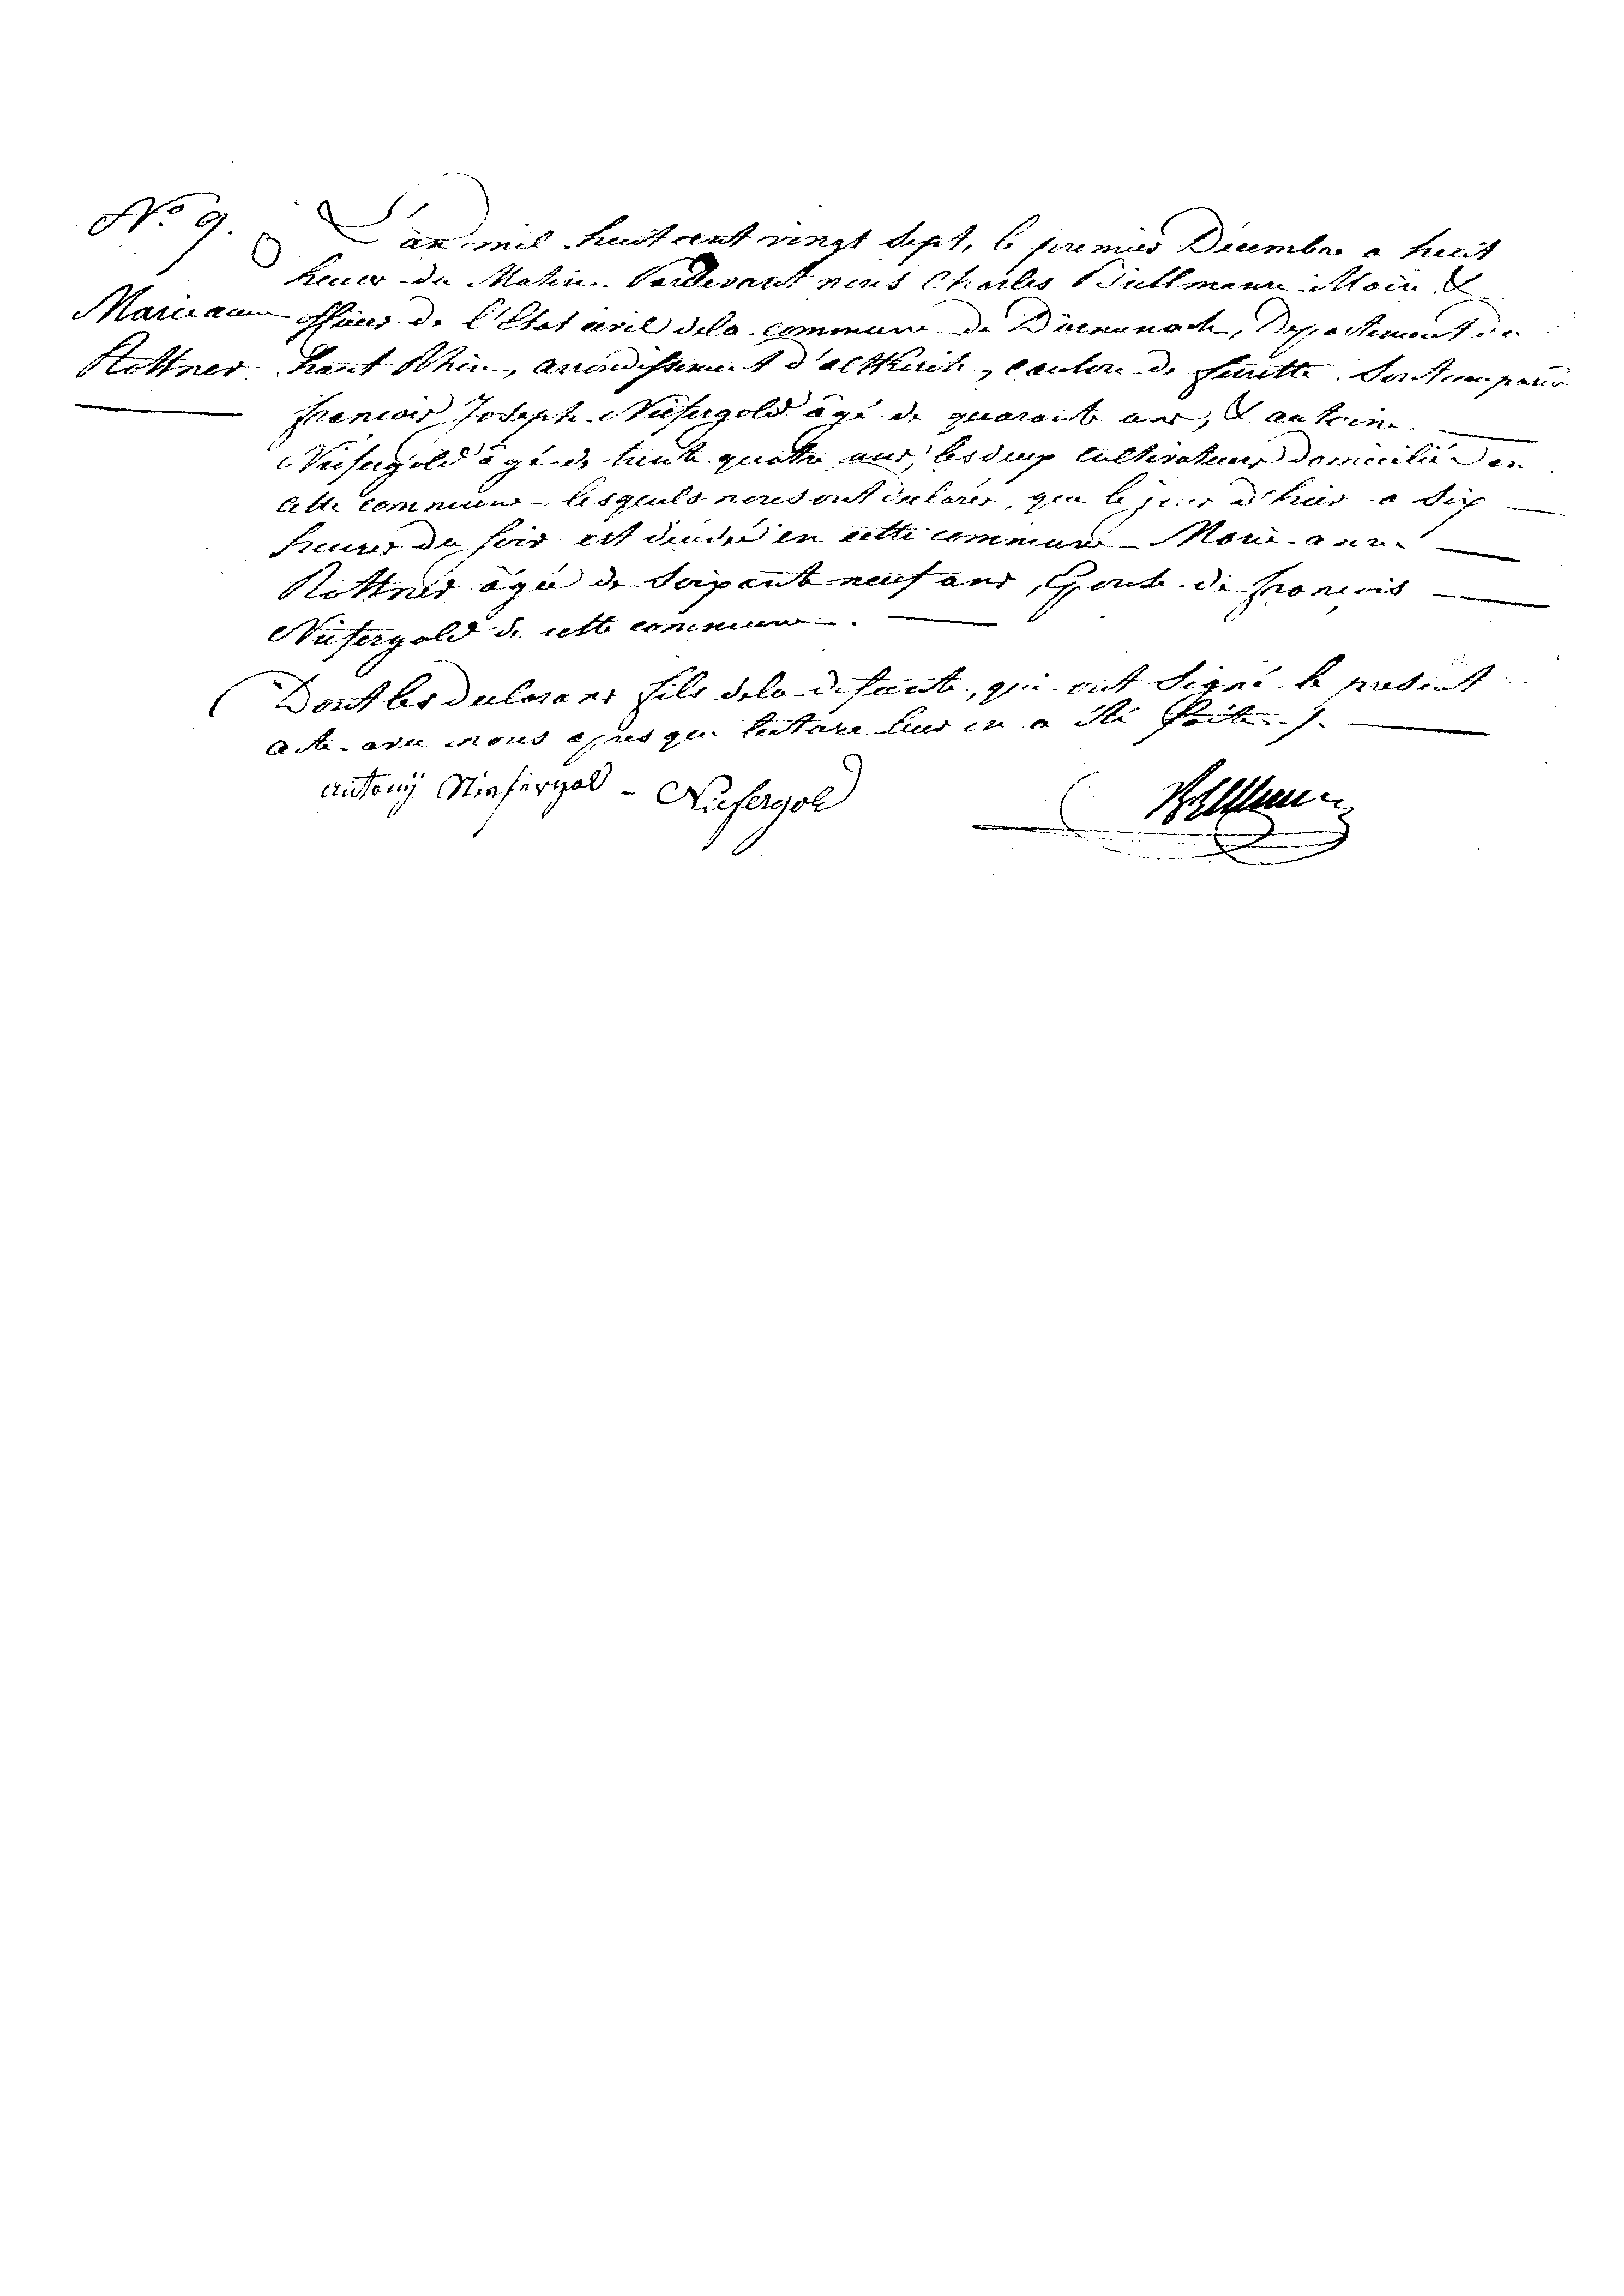 N.º 9.
Marie anne
Rottner
L'an mil huit cent vingt sept, le premier Décembre a huit
heures du Matin. Pardevant nous Charles Büllmann Maire &
officier de l'Etat civil dela commune de Dürmenach, Departement du
haut Rhin, arrondissement d'altkirch, canton de ferrette. Sont comparus
francois Joseph Niefergold âgé de quarante ans, & antoine
Niefergold âgé de trente quatre ans, les deux cultivateurs domiciliés en
cette commune lesquels nous ont declarés, que le jour d'hier a Six
heures du soir est décédé en cette commune Marie anne
Rottner âgée de Soixante neuf ans, Epouse de françois
Niefergold de cette commune.
Dont les declarans fils dela defunte, qui ont Signé le present
acte avec nous apres que lecture leur en a été faite ./.
antonÿ Niefergold - Niefergold